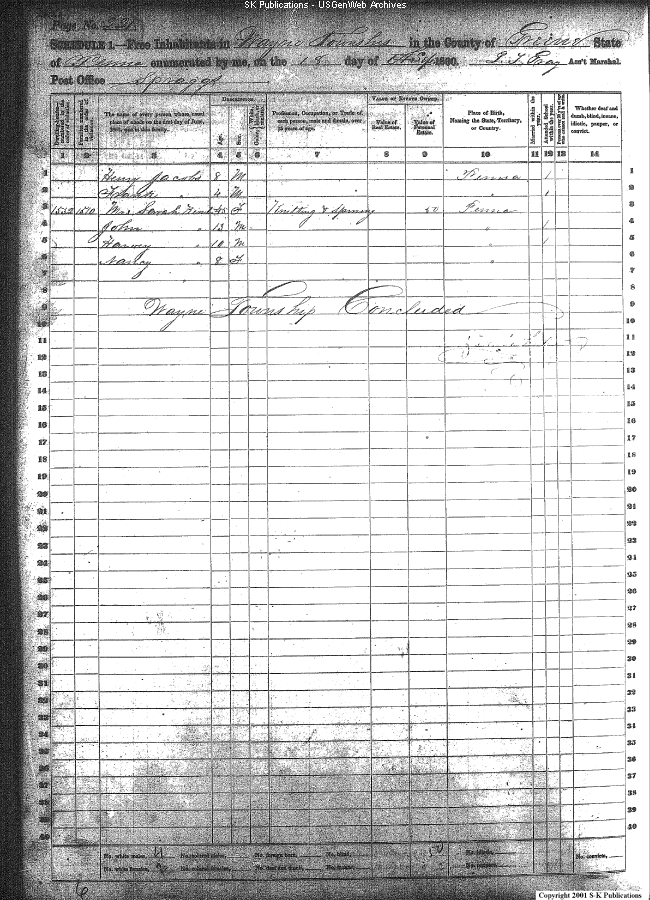 SK Publications - USGenWeb Archives
Page No.
SCHEDULE 1.—Free Inhabitants in Wayne Township in the County of Greene State
of Penna enumerated by me, on the 18 day of 1860. Ass't Marshal.
Post Office Spraggs
The name of every person whose usual place of abode on the first day of June, 1860, was in this family.
DESCRIPTION.
Age.
Sex.
Profession, Occupation, or Trade of each person, male and female, over 15 years of age.
VALUE OF ESTATE OWNED.
Value of Real Estate.
Value of Personal Estate.
Place of Birth, Naming the State, Territory, or Country.
Married within the year.
Attended School within the year.
Whether deaf and dumb, blind, insane, idiotic, pauper, or convict.
1 2 3 4 5 6 7 8 9 10 11 12 13 14
1 Henry Jacobs 8 M Penna 1 1
2 4 M " 1 2
3 1510 Mrs Sarah 45 F Knitting & Spinning 50 Penna 3
4 John " 13 M " 1 4
5 Harvey " 10 M " 1 5
6 Nancy " 8 F " 6
7 7
8 8
9 Wayne Township Concluded 9
10 10
11 11
12 12
13 13
14 14
15 15
16 16
17 17
18 18
19 19
20 20
21 21
22 22
23 23
24 24
25 25
26 26
27 27
28 28
29 29
30 30
31 31
32 32
33 33
34 34
35 35
36 36
37 37
38 38
39 39
40 40
No. white males, 4 No. colored males, No. foreign born, No. blind, 50
No. white females, 2 No. colored females, No. deaf and dumb, No. insane, No. convicts,
6
Copyright 2001 S-K Publications